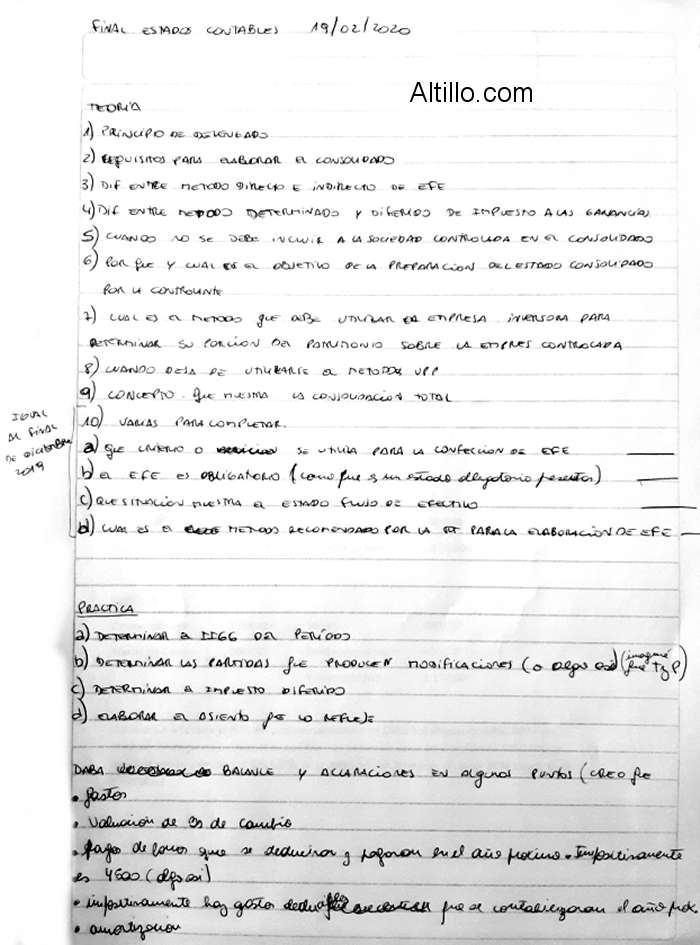 FINAL ESTADOS CONTABLES 19/02/2020
Altillo.com
TEORÍA
1) PRINCIPIO DE DEVENGADO
2) REQUISITOS PARA ELABORAR EL CONSOLIDADO
3) DIF ENTRE METODO DIRECTO E INDIRECTO DE EFE
4) DIF ENTRE METODO DETERMINADO Y DIFERIDO DE IMPUESTO A LAS GANANCIAS
5) CUANDO NO SE DEBE INCLUIR A LA SOCIEDAD CONTROLADA EN EL CONSOLIDADO
6) POR QUE Y CUAL ES EL OBJETIVO DE LA PREPARACION DEL ESTADO CONSOLIDADO
POR LA CONTROLANTE
7) CUAL ES EL METODO QUE DEBE UTILIZAR LA EMPRESA INVERSORA PARA
DETERMINAR SU PORCION DEL PATRIMONIO SOBRE LA EMPRES CONTROLADA
8) CUANDO DEJA DE UTILIZARSE EL METODO VPP
9) CONCEPTO QUE MUESTRA LA CONSOLIDACION TOTAL
10) VARIAS PARA COMPLETAR.
IGUAL
AL FINAL
DE DICIEMBRE
2019
a) QUE CRITERIO O SE UTILIZA PARA LA CONFECCION DE EFE
b) EL EFE ES OBLIGATORIO (como que es un estado obligatorio presentar)
c) QUE SITUACION MUESTRA EL ESTADO FLUJO DE EFECTIVO
d) CUAL ES EL METODO RECOMENDADO POR LA RT PARA LA ELABORACION DE EFE
PRACTICA
a) DETERMINAR EL IIGG DEL PERÍODO
b) DETERMINAR LAS PARTIDAS QUE PRODUCEN MODIFICACIONES (o algo así) (imaginé
que T y P)
c) DETERMINAR EL IMPUESTO DIFERIDO
d) ELABORAR EL ASIENTO QUE LO REFLEJE
DABA BALANCE Y ACLARACIONES EN ALGUNOS PUNTOS (CREO QUE
• gastos
• Valuación de Bs de cambio
• pagos de que se deducirán y pagaran en el año proximo. Impositivamente
es 4500 (algo asi)
• impositivamente hay gastos que se contabilizaron el año prox.
• amortización